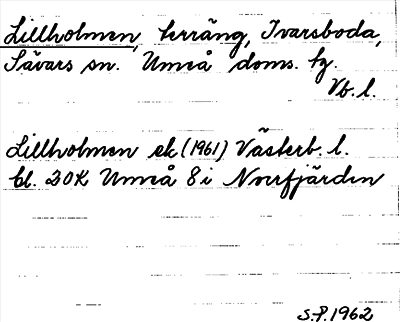 Lillholmen, terräng, Ivarsboda,
Sävars sn. Umeå doms. tg.
Vb. l.
Lillholmen ek (1961) Västerb. l.
bl. 20K Umeå 8 i Norrfjärden
S.P. 1962